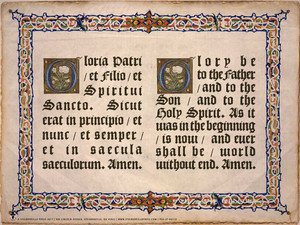 Gloria Patri
/ et Filio / et
Spiritui
Sancto. Sicut
erat in principio / et
nunc / et semper /
et in saecula
saeculorum. Amen.
Glory be
to the Father
/ and to the
Son / and to the
Holy Spirit. As it
was in the beginning
/ is now / and ever
shall be / world
without end. Amen.